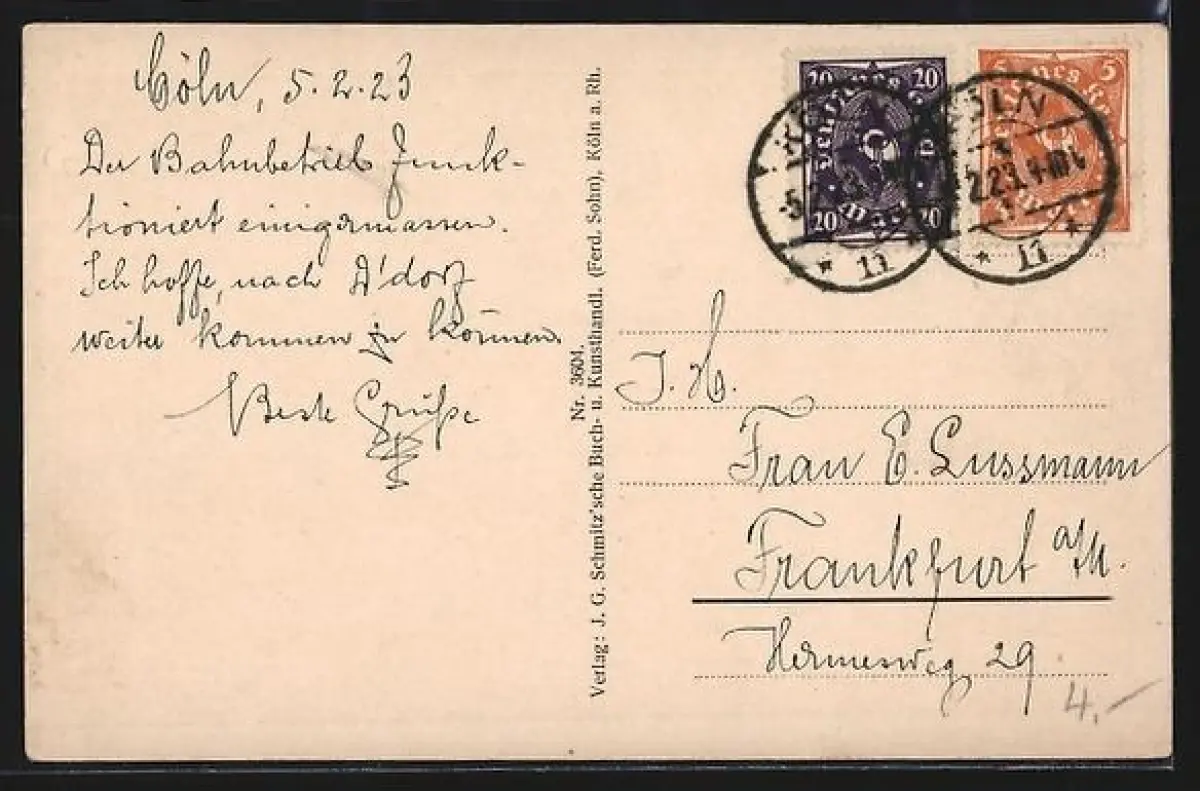 Cöln, 5.2.23
Der Bahnbetrieb funk-
tioniert einigermassen.
Ich hoffe, nach D'dorf
weiter kommen zu können.
Beste Grüße
Nr. 3604.
Verlag: J. G. Schmitz'sche Buch- u. Kunsthandl. (Ferd. Sohn), Köln a. Rh.
20 20
20 20
5 5
CÖLN
11
11
J. H.
Frau E. Lussmann
Frankfurt a/M.
Hermesweg 29
4.-